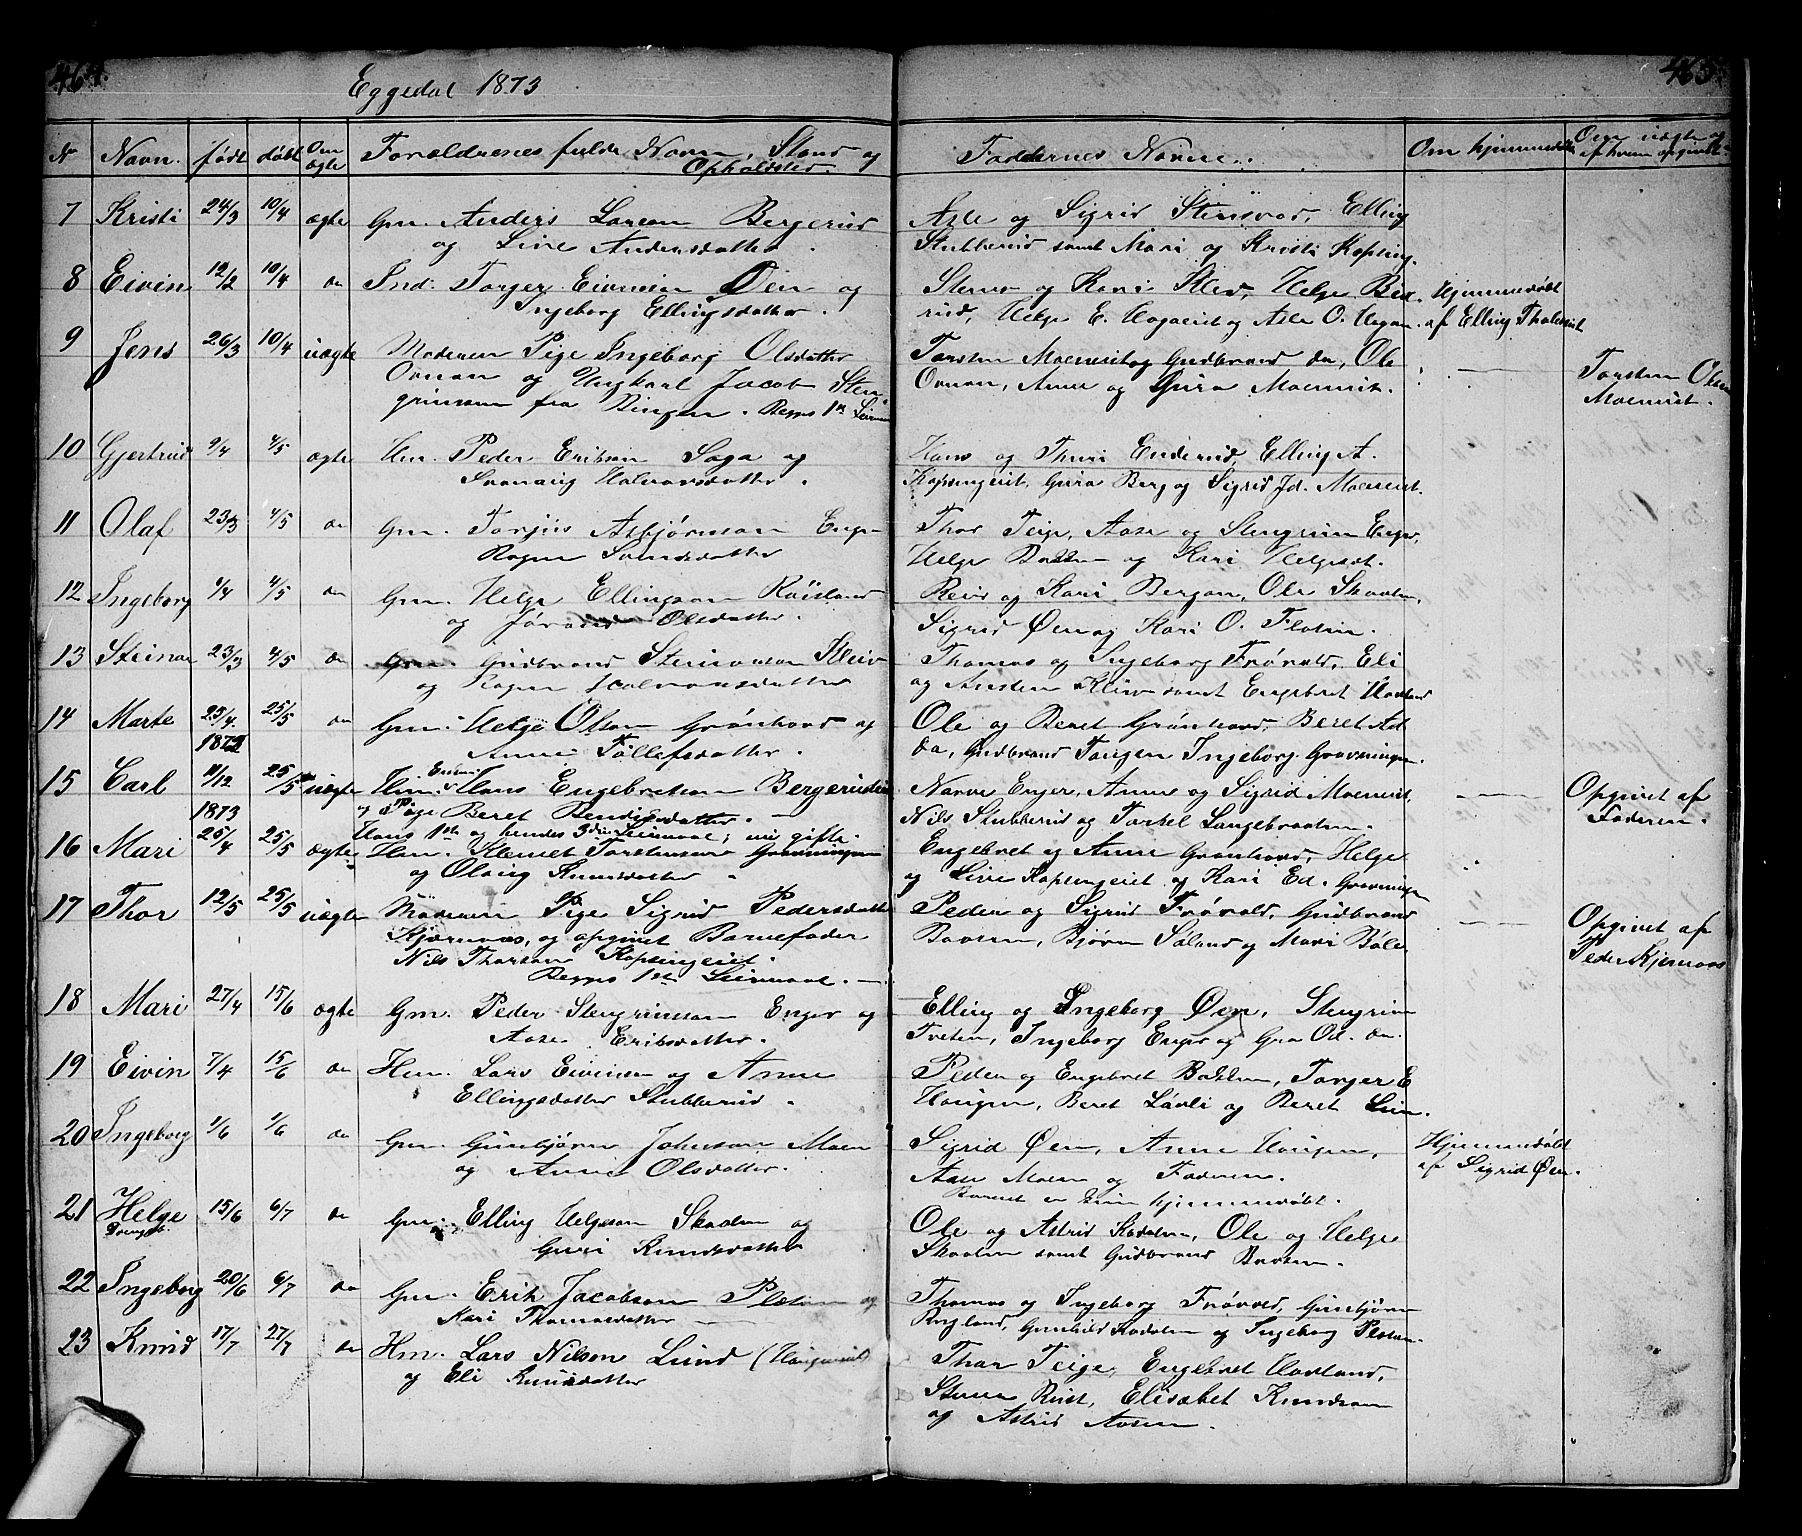 464.
Eggedal 1873
465.
N Navn. født døbt Om ægte Forældrenes fulde Navn, Stand og Opholdsted. Faddernes Navne. Om hjemmedøbt Om uægte og af hvem opgivet
7 Kristi 24/3 10/4 ægte Gm. Anders Larsen Bergerud Asle og Sigrid Stensvad, Elling
og Live Andersdatter. Stubberud samt Mari og Kristi Kopseng.
8 Eivin 12/2 10/4 do Ind. Torger Eivinsen Øen og Stener og Kari Klev, Helge Bak- Hjemmedøbt
Ingeborg Ellingsdatter. rud, Helge E. Hagaeiet og Asle O. Hagan. af Elling
9 Jens 26/3 10/4 uægte Moderen Pige Ingeborg Olsdatter Torsten Moeneiet og Gudbrand do, Ole
Ovnan og Ungkarl Jacob Sten- Ovnan, Anne og Guro Moeneiet. Torsten Olsen
grimsen fra Ringen. Begges 1ste Leiermaal Moeneiet.
10 Gjertrud 9/4 4/5 ægte Hm. Peder Eriksen Saga og Hans og Thuri Enderud, Elling A.
Halvorsdatter. Kopsengeiet, Guro Berg og Sigrid Moeneiet.
11 Olaf 23/3 4/5 do Gm. Torjus Asbjørnsen Enger Thor Teige, Aase og Stengrim Enger,
Ragne Svensdatter Helge Bakken og Kari Helgeset.
12 Ingeborg 1/4 4/5 do Gm. Helge Ellingsen Røisland Reier og Kari Bergan, Ole Skaalen,
og Olsdatter. Sigrid Øen og Kari O. Flaten.
13 Steinar 23/3 4/5 do Gm. Gudbrand Steinarsen Kleiv Thomas og Ingeborg Frøvold, Eli
og Ragne Halvorsdatter og Ansten Kleiv samt Engebret Havland
14 Marte 23/4 25/5 do Gm. Helge Olsen Grønhovd og Ole og Beret Grønhovd, Beret
1872 Anne Tollefsdatter. do, Gudbrand Tangen Ingeborg Gravningen.
15 Carl 11/12 25/5 uægte Hans Engebretsen Bergerudeiet Narve Enger, Anne og Sigrid Moeneiet, Opgivet af
1873 og Pige Beret Bendiksdatter. Nils Stubberud og Torkel Langebraaten. Faderen.
Hans 1ste og hendes 3die Leiermaal; nu gifte.
16 Mari 25/4 25/5 ægte Hm. Klemet Torstensen Gravningen Engebret og Anne Grønhovd, Helge
og Olaug Knudsdatter. og Live Kopsengeiet og Kari Ed. Gravningen
17 Thor 12/5 25/5 uægte Moderen Pige Sigrid Pedersdatter Peder og Sigrid Frøvold, Gudbrand Opgivet af
Kjærnaas, og opgivet Barnefader Braaten, Bjørn Søland og Mari Bøle. Peder Kjernaas
Nils Thorsen Kopsengeiet.
Begges 1ste Leiermaal.
18 Mari 27/4 15/6 ægte Gm. Peder Stengrimsen Enger og Elling og Ingeborg Øen, Stengrim
Aase Eriksdatter. Tveten, Ingeborg Enger og Gro Od. do.
19 Eivin 7/4 15/6 do Hm. Lars Eivinsen og Anne Peder og Engebret Bakken, Torger E
Ellingsdatter Stubberud. Haugen, Beret Låvli og Beret Lien.
20 Ingeborg 1/6 1/6 do Gm. Gunbjørn Johnsen Moen Sigrid Øen, Anne Haugen, Hjemmedøbt
og Anne Olsdatter. Aase Moen og Faderen. af Sigrid Øen.
Barnet er kun hjemmedøbt.
21 Helge Drengeb. 15/6 6/7 do Gm. Elling Helgesen Skaalen og Ole og Astrid Kadalen, Ole og Helge
Guri Knudsdatter Skaalen samt Gudbrand Braaten.
22 Ingeborg 20/6 6/7 do Gm. Erik Jacobsen Plassen og Thomas og Ingeborg Frøvold, Gunbjørn
Kari Thomasdatter Rugland, Gunhild Kadalen og Ingeborg Plassen.
23 Knud 17/7 27/7 do Hm. Lars Nilsen Lund (Haugerud) Thor Teige, Engebret Havland,
og Eli Knudsdatter Stener Rust, Elisabet Knudsen
og Astrid Aasen.